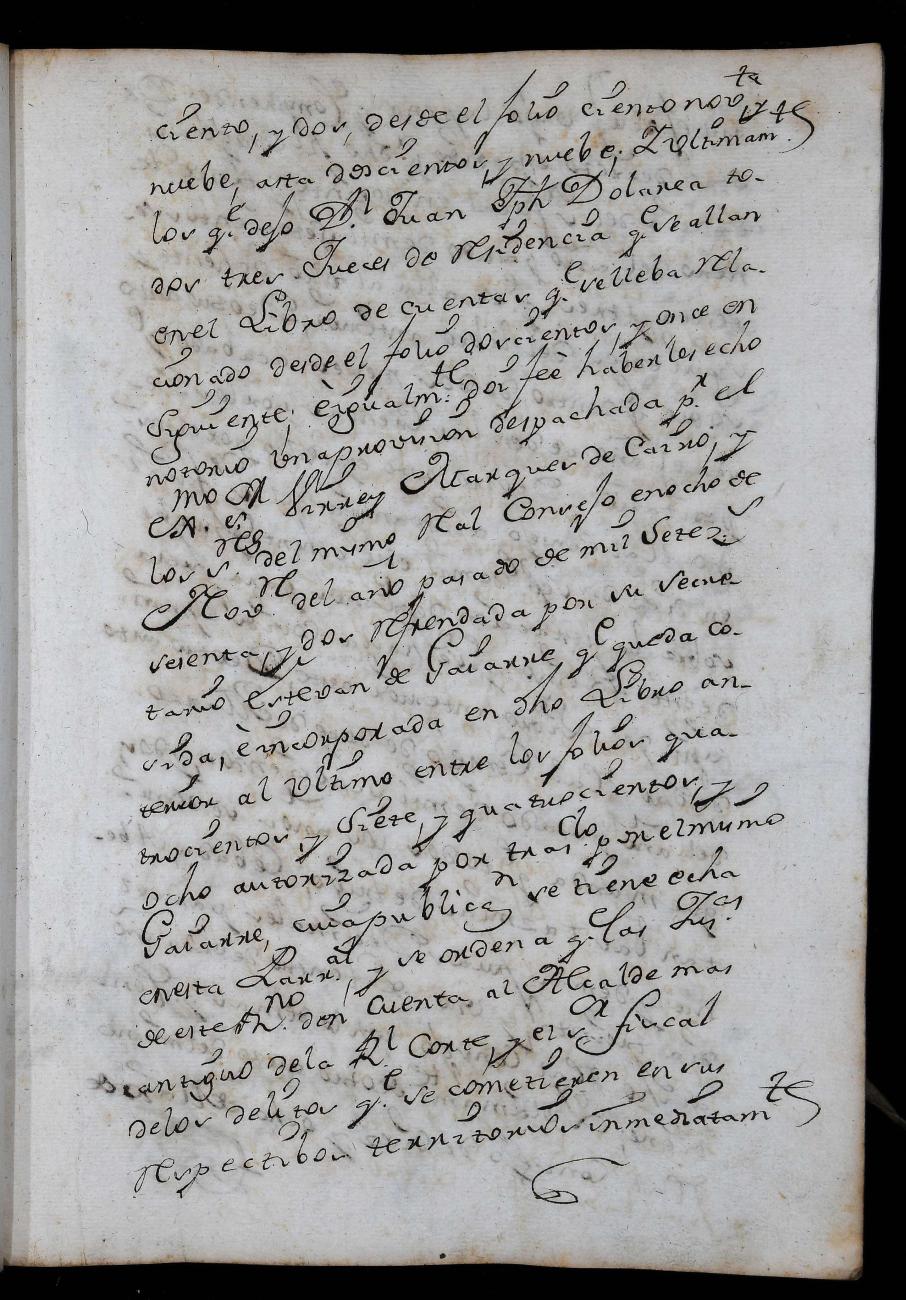 ciento, y dos, desde el folio ciento nov.ta y
nuebe, asta doscientos, y nuebe; Y Ultimam.te
los q.e deJo D.n Juan Jph Dolarea to-
dos tres Jueces de Residencia q.e se allan
en el Libro de cuentas q.e se lleba rela-
cionado desde el folio doscientos, y once en
Siguiente; è igualm.te doi feè haberles echo
notorio Una provision despachada p.r el
Ex.mo S.r Virrey Marques de Cairo, y
los S.res del mismo Real Consejo en ocho de
Nov.re del año pasado de mil Setez.s
seienta, y dos Refrendada por su secre-
tario Estevan de Gaiarre q.e queda co-
sida, è incorporada en dho Libro an-
terior al Ultimo entre los folios qua-
trocientos, y Siete, y quatrocientos, y
ocho autorizada por tras.do por el mismo
Gaiarre, cuia public.n se tiene echa
en esta Parr.al, y se ordena q.e las Jus.cas
de este R.no den Cuenta al Alcalde mas
antiguo de la R.l Corte, y el S.r fiscal
de los delitos q.e se cometieren en sus
Respectibos territorios inmediatam.te